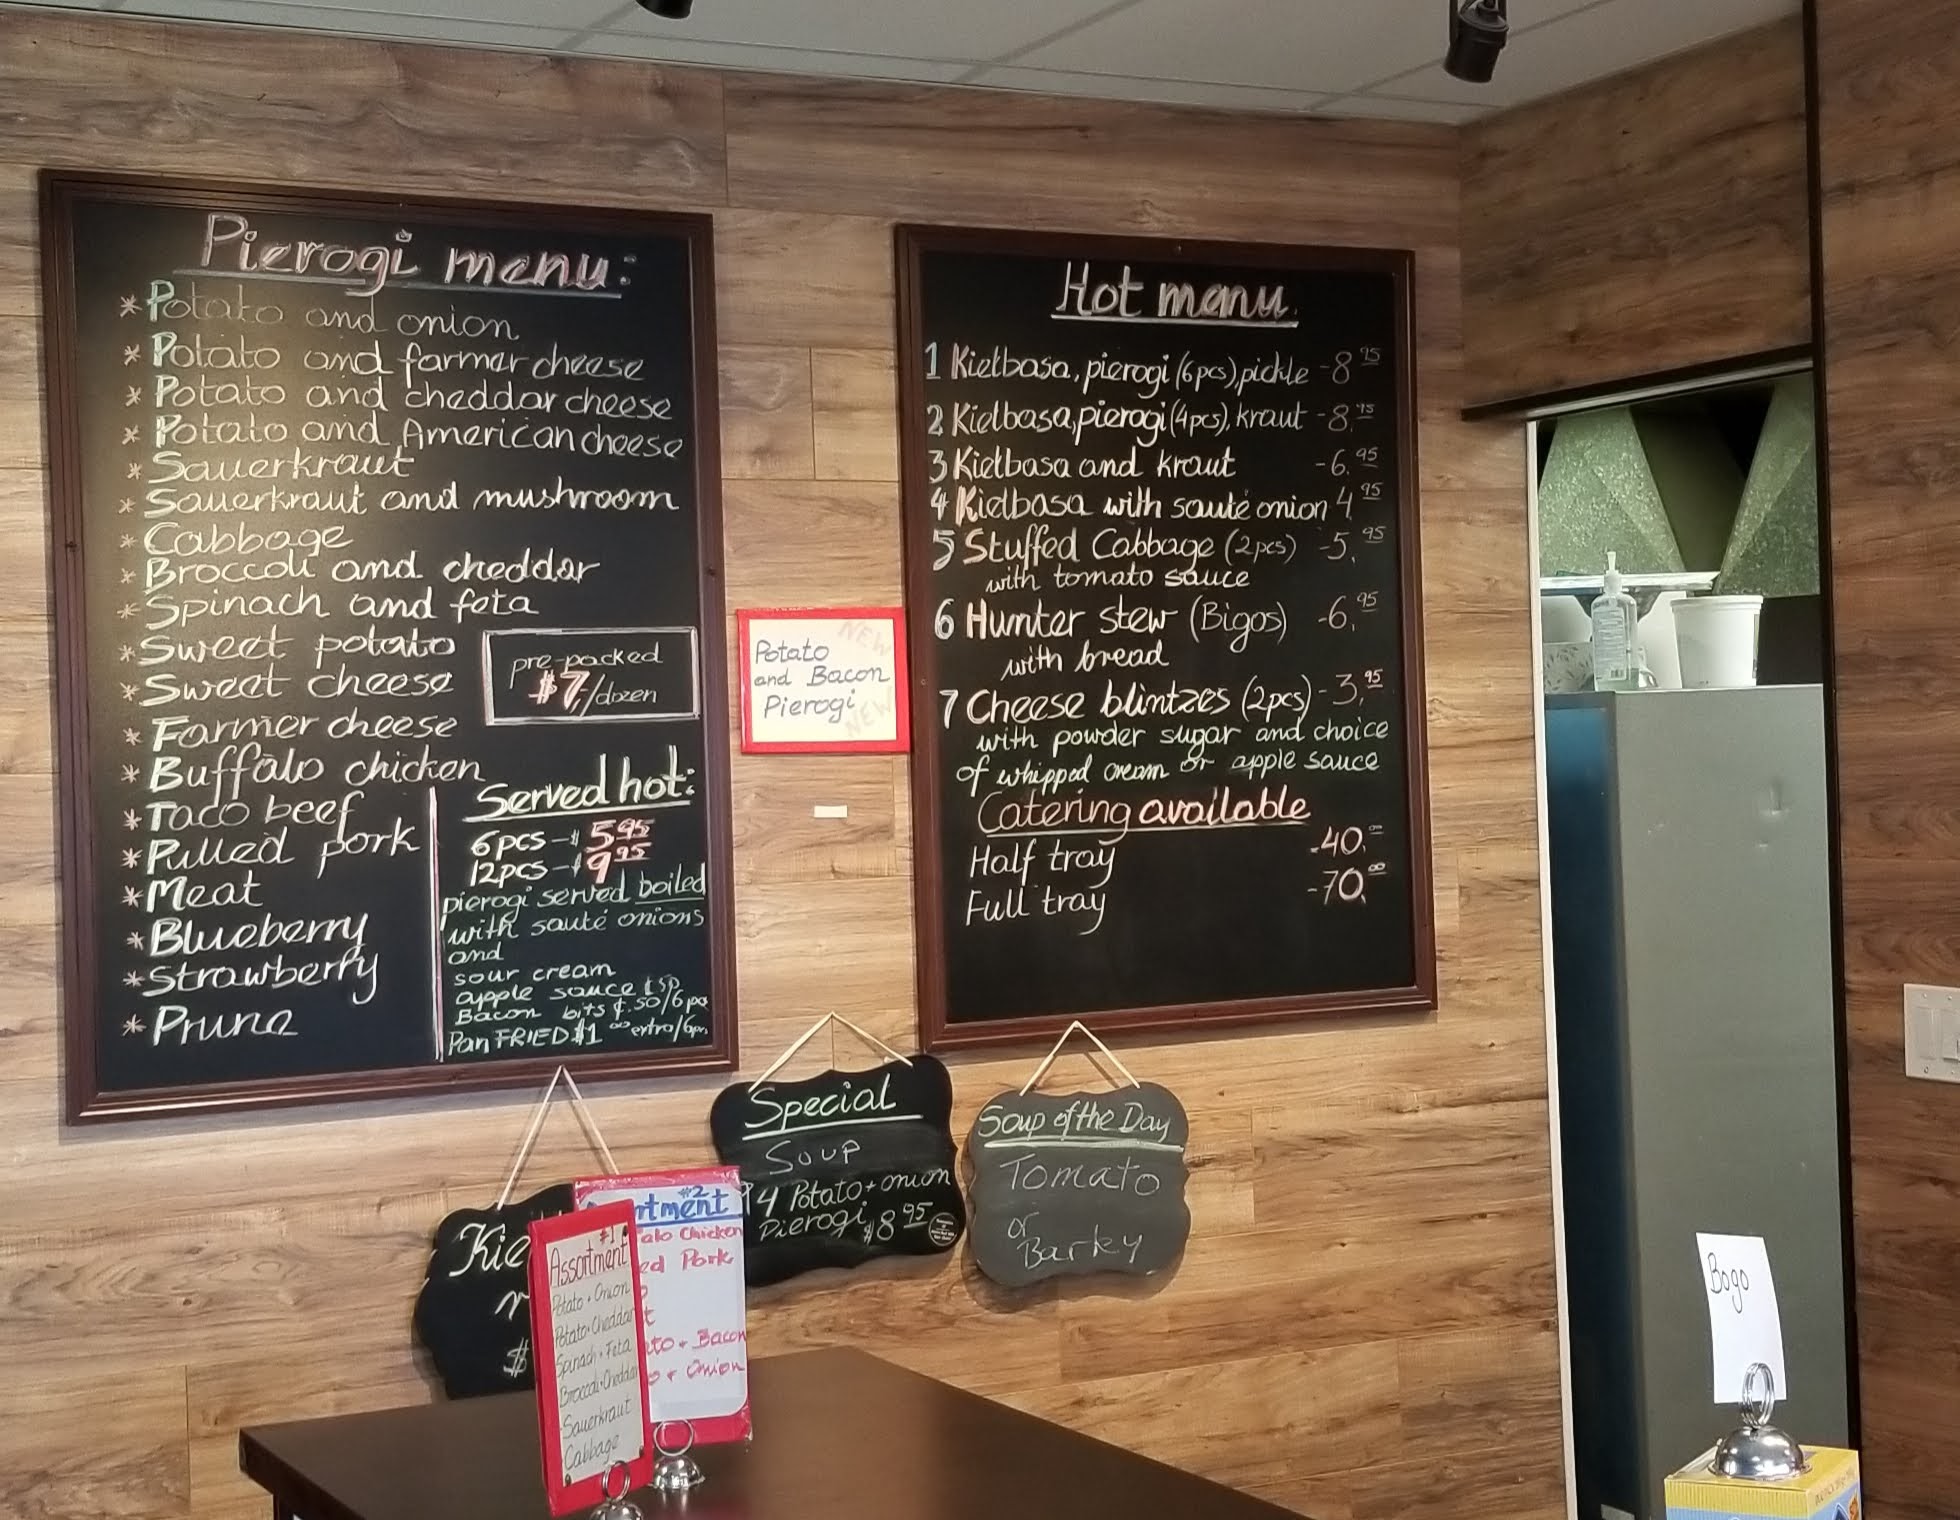 Pierogi menu:
* Potato and onion
* Potato and farmer cheese
* Potato and cheddar cheese
* Potato and American cheese
* Sauerkraut
* Sauerkraut and mushroom
* Cabbage
* Broccoli and cheddar
* Spinach and feta
* Sweet potato
* Sweet cheese
* Farmer cheese
* Buffalo chicken
* Taco beef
* Pulled pork
* Meat
* Blueberry
* Strawberry
* Prune
pre-packed
$7/dozen
Served hot:
6pcs - $ 5 95
12pcs - $ 9 95
pierogi served boiled
with sauté onions
and
sour cream
apple sauce
Bacon bits $.50/6pcs
Pan FRIED $1 00 extra/6pc
NEW
Potato
and Bacon
Pierogi
NEW
Hot menu
1 Kielbasa, pierogi (6pcs), pickle - 8 95
2 Kielbasa, pierogi (4pcs), kraut - 8. 95
3 Kielbasa and kraut - 6. 95
4 Kielbasa with sauté onion 4 95
5 Stuffed Cabbage (2pcs) - 5. 95
with tomato sauce
6 Hunter stew (Bigos) - 6. 95
with bread
7 Cheese blintzes (2pcs) - 3. 95
with powder sugar and choice
of whipped cream or apple sauce
Catering available
Half tray - 40. 00
Full tray - 70. 00
Special
Soup
4 Potato + onion
Pierogi $8 95
Soup of the Day
Tomato
or
Barley
Kie
$
#1
Assortment
Potato + Onion
Potato + Cheddar
Spinach + Feta
Broccoli + Cheddar
Sauerkraut
Cabbage
#2
rtment
alo Chicken
ed Pork
to + Bacon
+ Onion
Bogo